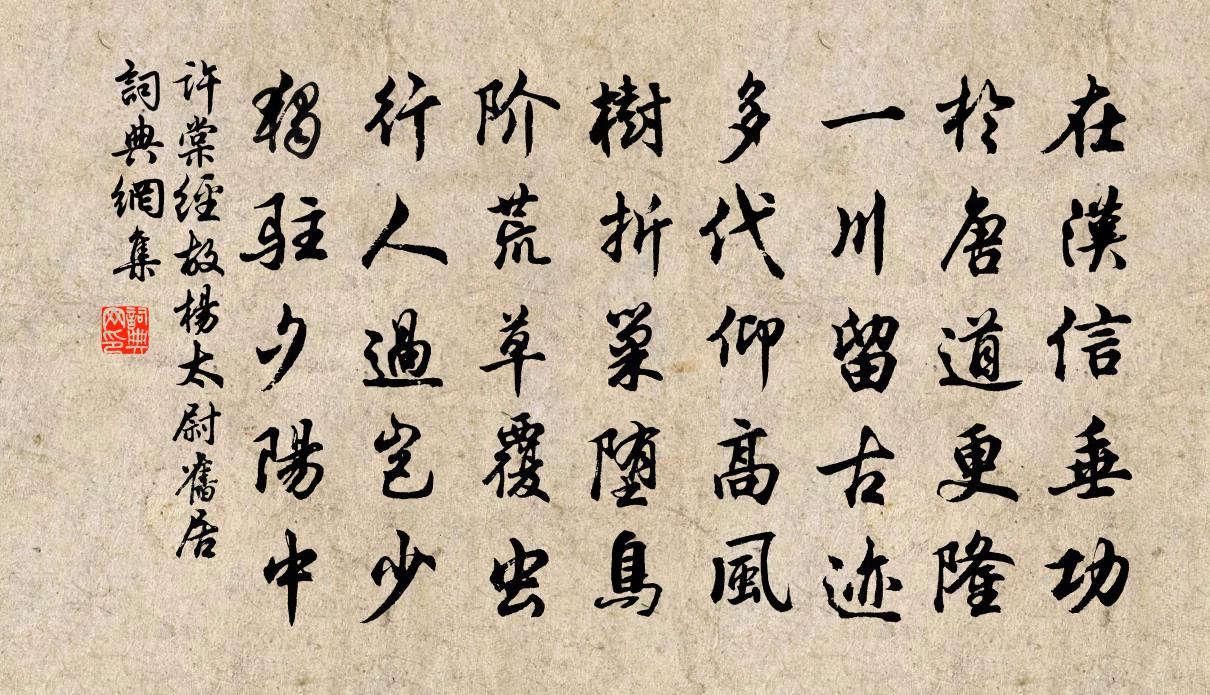 在漢信垂功
於唐道更隆
一川留古迹
多代仰高風
樹折巢堕鳥
阶荒草覆虫
行人過岂少
獨駐夕陽中
許棠經故楊太尉舊居
詞典網集
詞典网印